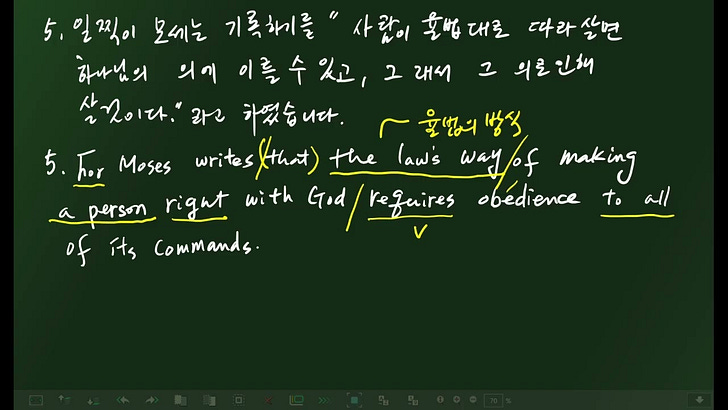 5. 일찍이 모세는 기록하기를 " 사람이 율법대로 따라 살면
하나님의 의에 이를 수 있고, 그래서 그 의로 인해
살 것이다." 라고 하였습니다.
율법의 방식
5. For Moses writes (that) the law's way / of making
a person right with God / requires obedience to all
v
of its commands.
70 %